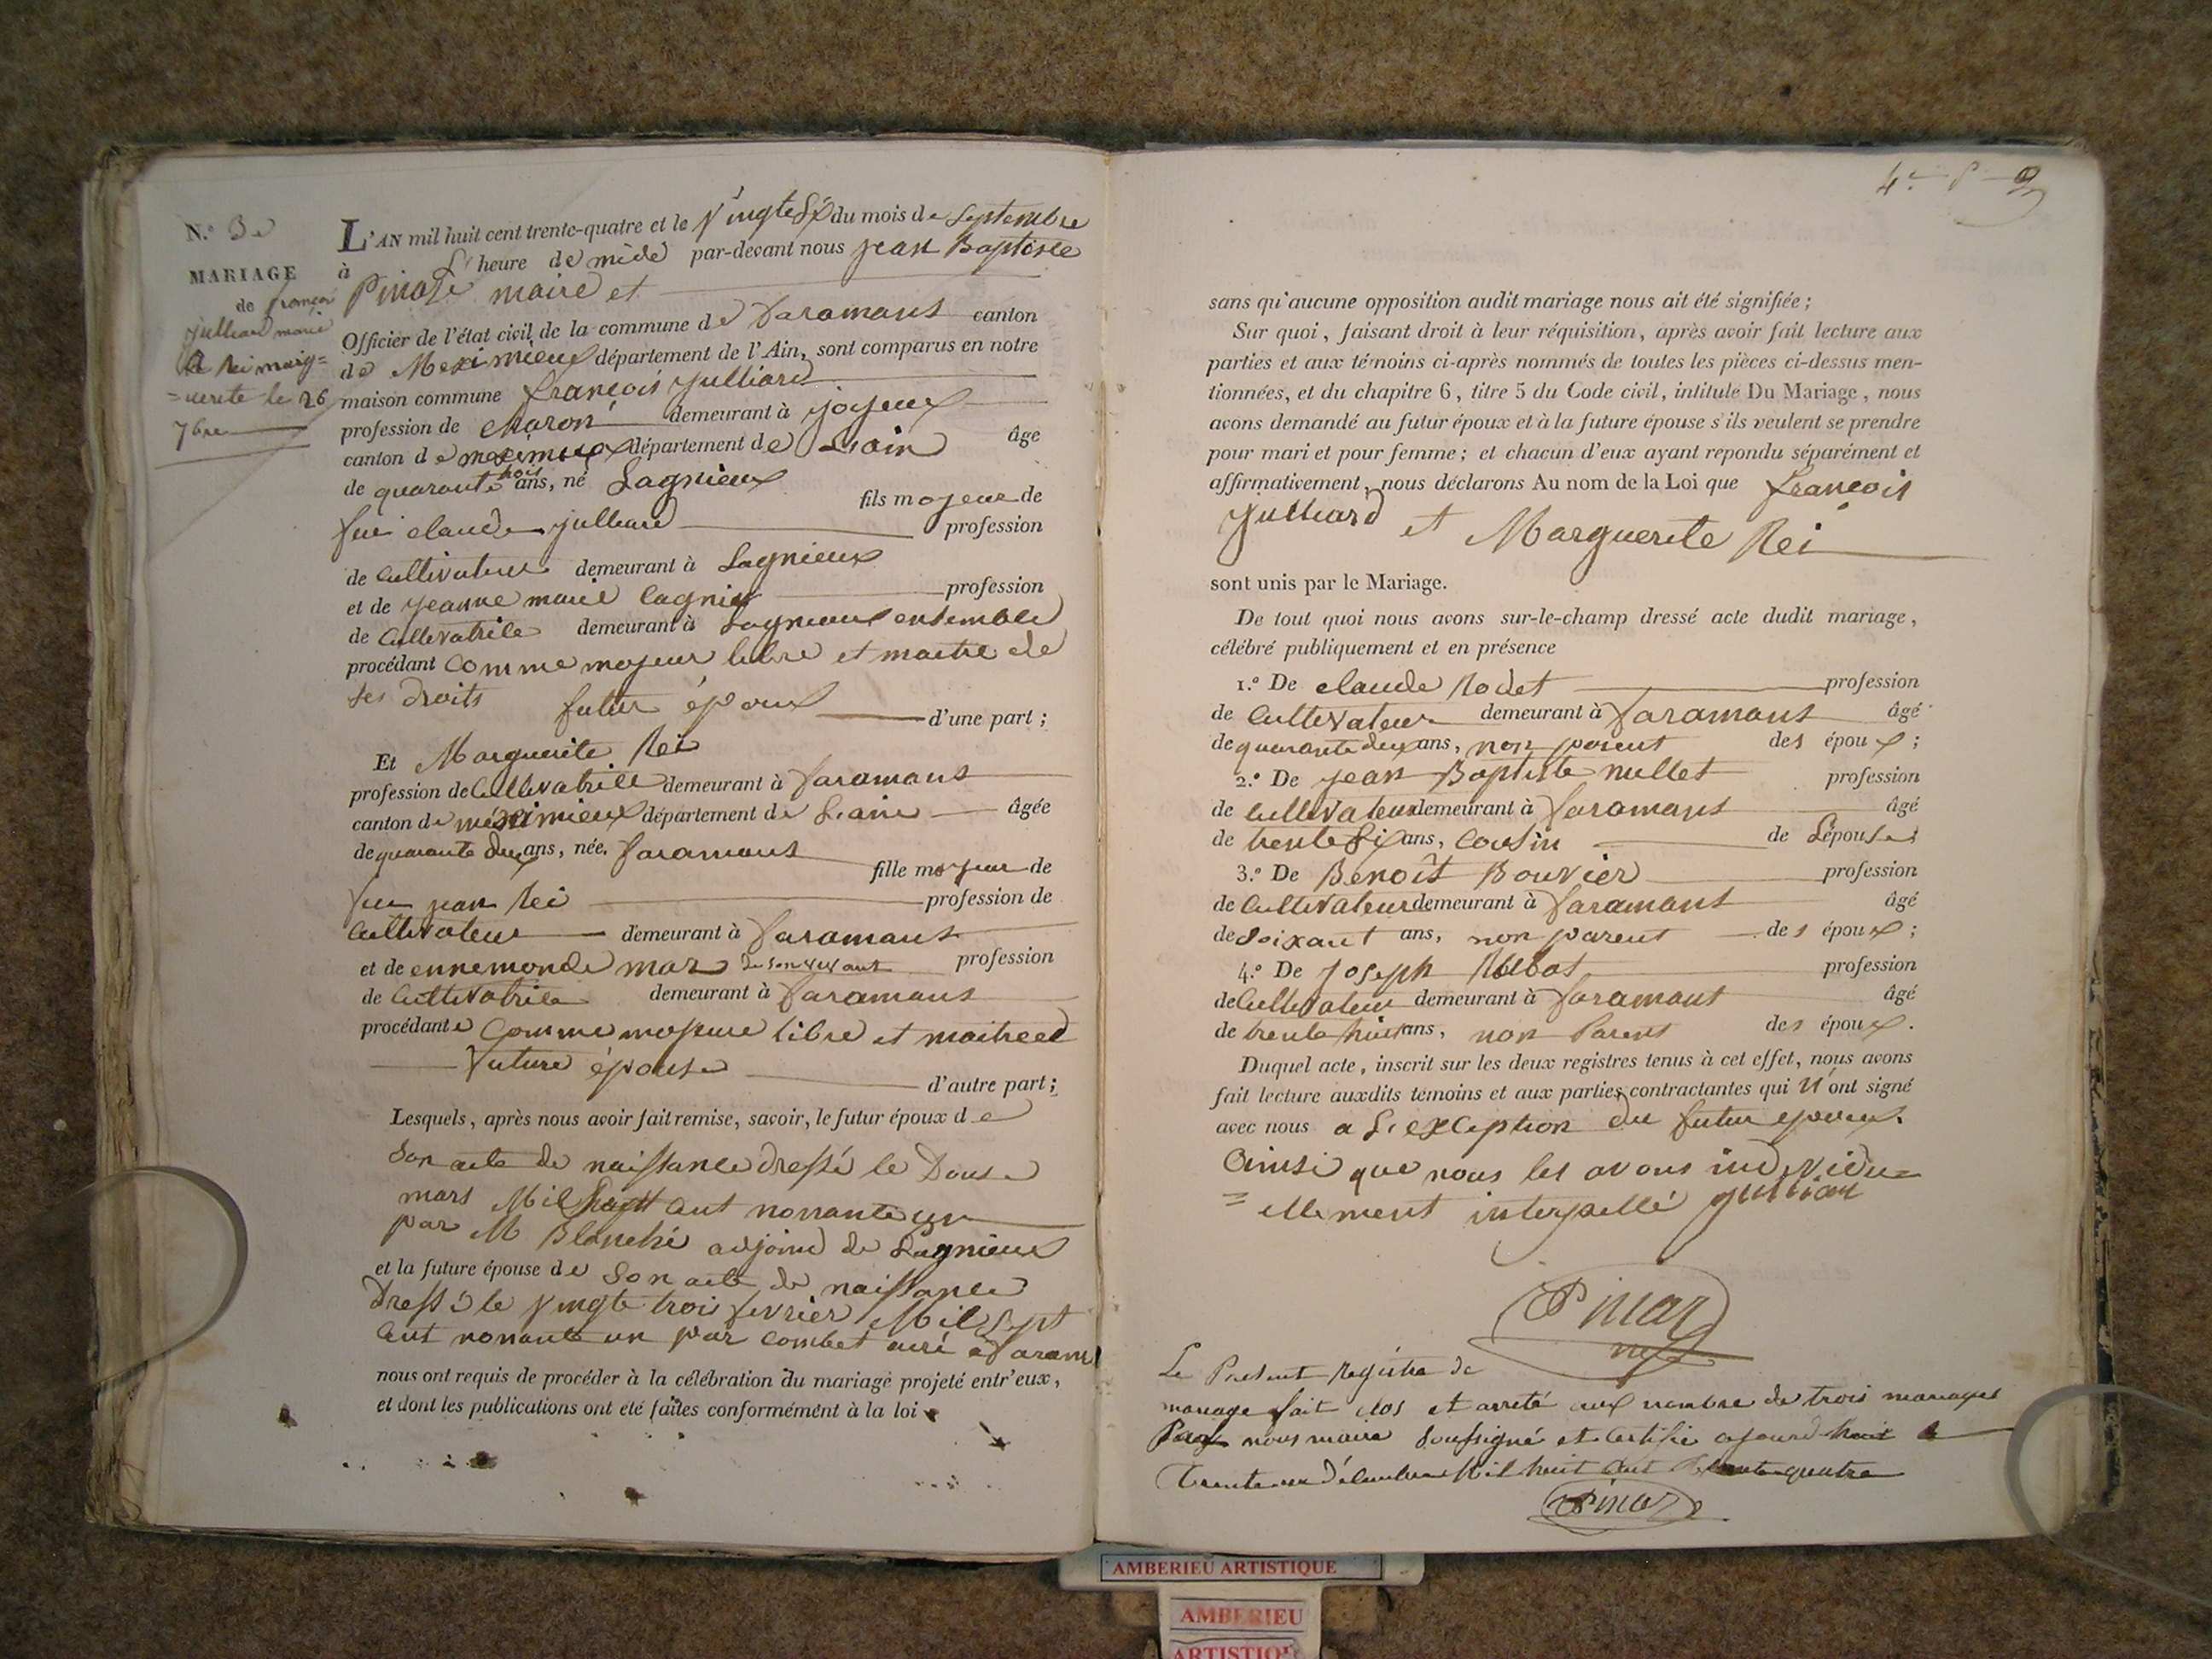 N.º 3e
MARIAGE
de françoi
julliard marié
a Rei marg=
=uerite le 26
7bre
L'AN mil huit cent trente-quatre et le Vingt Six du mois de Septembre
à L'heure de midi par-devant nous jean Baptiste
Pinaz maire et
Officier de l'état civil de la commune de faramans canton
de Meximieux département de l'Ain, sont comparus en notre
maison commune françois julliard
profession de charon demeurant à joyeux
canton de meximieux département de L'ain âge
de quarante trois ans, né Lagnieux
fils majeur de
feu claude julliard profession
de cultivateur demeurant à Lagnieux
et de jeanne marie profession
de cultivatrice demeurant à Lagnieux ensemble
procédant comme majeur libre et maitre de
ses droits futur époux d'une part ;
Et Marguerite Rei
profession de Cultivatrice demeurant à faramans
canton de méximieux département de L'ain âgée
de quarante deux ans, née. faramans
fille majeur de
feu jean Rei profession de
Cultivateur demeurant à faramans
et de ennemonde maz de son vivant profession
de Cultivatrice demeurant à faramans
procédante Comme majeure libre et maitresse
future épouse d'autre part ;
Lesquels, après nous avoir fait remise, savoir, le futur époux de
Son acte de naissance dressé le Douse
mars Mil Sept Cent nonante un
par M Blanché adjoind de Lagnieux
et la future épouse de Son acte de naissance
Dressé le vingte trois fevrier Mil Sept
Cent nonante un par Combet curé a faram
nous ont requis de procéder à la célébration du mariage projeté entr'eux,
et dont les publications ont été faites conformément à la loi
sans qu'aucune opposition audit mariage nous ait été signifiée ;
Sur quoi, faisant droit à leur réquisition, après avoir fait lecture aux
parties et aux témoins ci-après nommés de toutes les pièces ci-dessus men-
tionnées, et du chapitre 6, titre 5 du Code civil, intitulé Du Mariage, nous
avons demandé au futur époux et à la future épouse s'ils veulent se prendre
pour mari et pour femme ; et chacun d'eux ayant repondu séparément et
affirmativement, nous déclarons Au nom de la Loi que françois
julliard et Marguerite Rei
sont unis par le Mariage.
De tout quoi nous avons sur-le-champ dressé acte dudit mariage,
célébré publiquement et en présence
1.º De claude Rodet profession
de Cultivateur demeurant à faramans âgé
de quarante deux ans, non parent des époux ;
2.º De jean Baptiste nullet profession
de Cultivateur demeurant à faramans âgé
de trente Six ans, cousin de L'épouse
3.º De Benoît Bouvier profession
de Cultivateur demeurant à faramans âgé
de Soixant ans, non parent des époux ;
4.º De Joseph profession
de Cultivateur demeurant à faramans âgé
de trente huit ans, non Parent des époux.
Duquel acte, inscrit sur les deux registres tenus à cet effet, nous avons
fait lecture auxdits temoins et aux parties contractantes qui n'ont signé
avec nous a L'exception du futur époux.
Ainsi que nous les avons individu=
=ellement interpellé julliar
Pinaz
Le Présent Registre de
mariage fait clos et arreté aux nombre de trois mariages
Par nous maire Soussigné et Certifié ajourd huit le
trente un Décembre Mil huit Cent trente quatre
Pinaz
AMBERIEU ARTISTIQUE
AMBERIEU